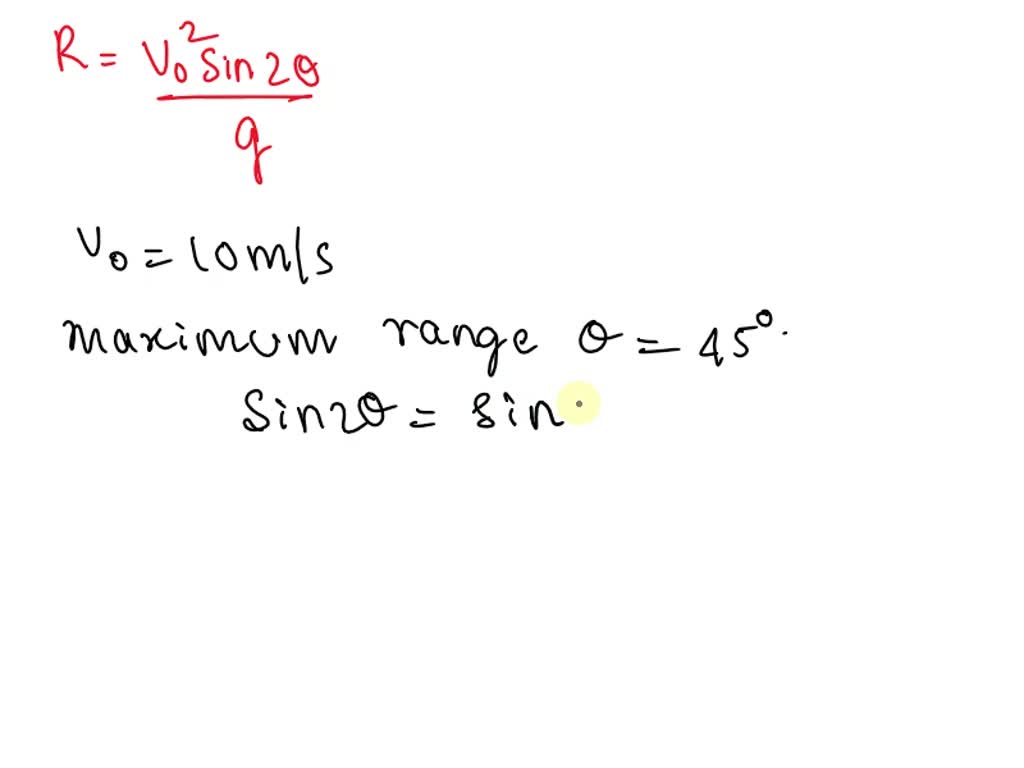 R = V₀² Sin 2θ
g
V₀ = 10 m/s
maximum range θ = 45°.
Sin2θ = Sin